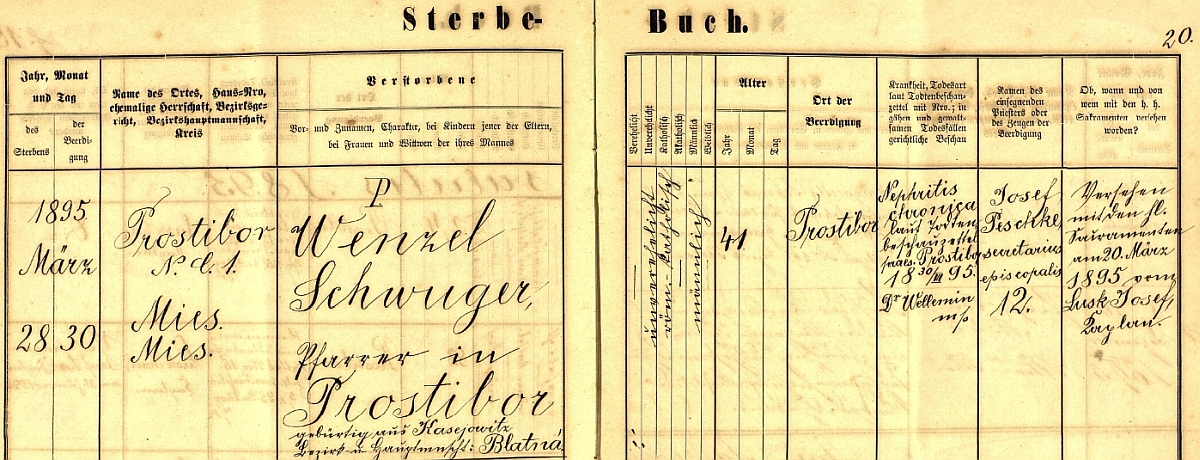 Sterbe-Buch.
20.
Jahr, Monat
und Tag
des
Sterbens
der
Beerdi-
gung
Name des Ortes, Haus-Nro,
ehemalige Herrschaft, Bezirksge-
richt, Bezirkshauptmannschaft,
Kreis
Verstorbene
Vor- und Zunamen, Charakter, bei Kindern jener der Eltern,
bei Frauen und Wittwen der ihres Mannes
Verehelicht
Unverehelicht
Katholisch
Akatholisch
Männlich
Weiblich
Alter
Jahr
Monat
Tag
Ort der
Beerdigung
Krankheit, Todesart
laut Todtenbeschau-
zettel mit Nro.; in
gähen und gewalt-
samen Todesfällen
gerichtliche Beschau
Namen des
einsegnenden
Priesters oder
des Zeugen der
Beerdigung
Ob, wann und von
wem mit den h. h.
Sakramenten versehen
worden?
1895
März
28
30
Prostibor
N. C. 1.
Mies.
Mies.
P.
Wenzel
Schwuger,
Pfarrer in
Prostibor
gebürtig aus Kasejowitz
Bezirk u. Hauptmnscht: Blatná.
unverehelicht
röm. katholisch
männlich
41
Prostibor
Nephritis
chronica
laut Todten
beschauzettel
Prostibor
18 30/III 95.
Dr Wellemin
m/p
Josef
Peschtke,
secretarius
episcopalis
12.
Versehen
mit den hl.
Sacramenten
am 20. März
1895 vom
Lusk Josef,
Kaplan.